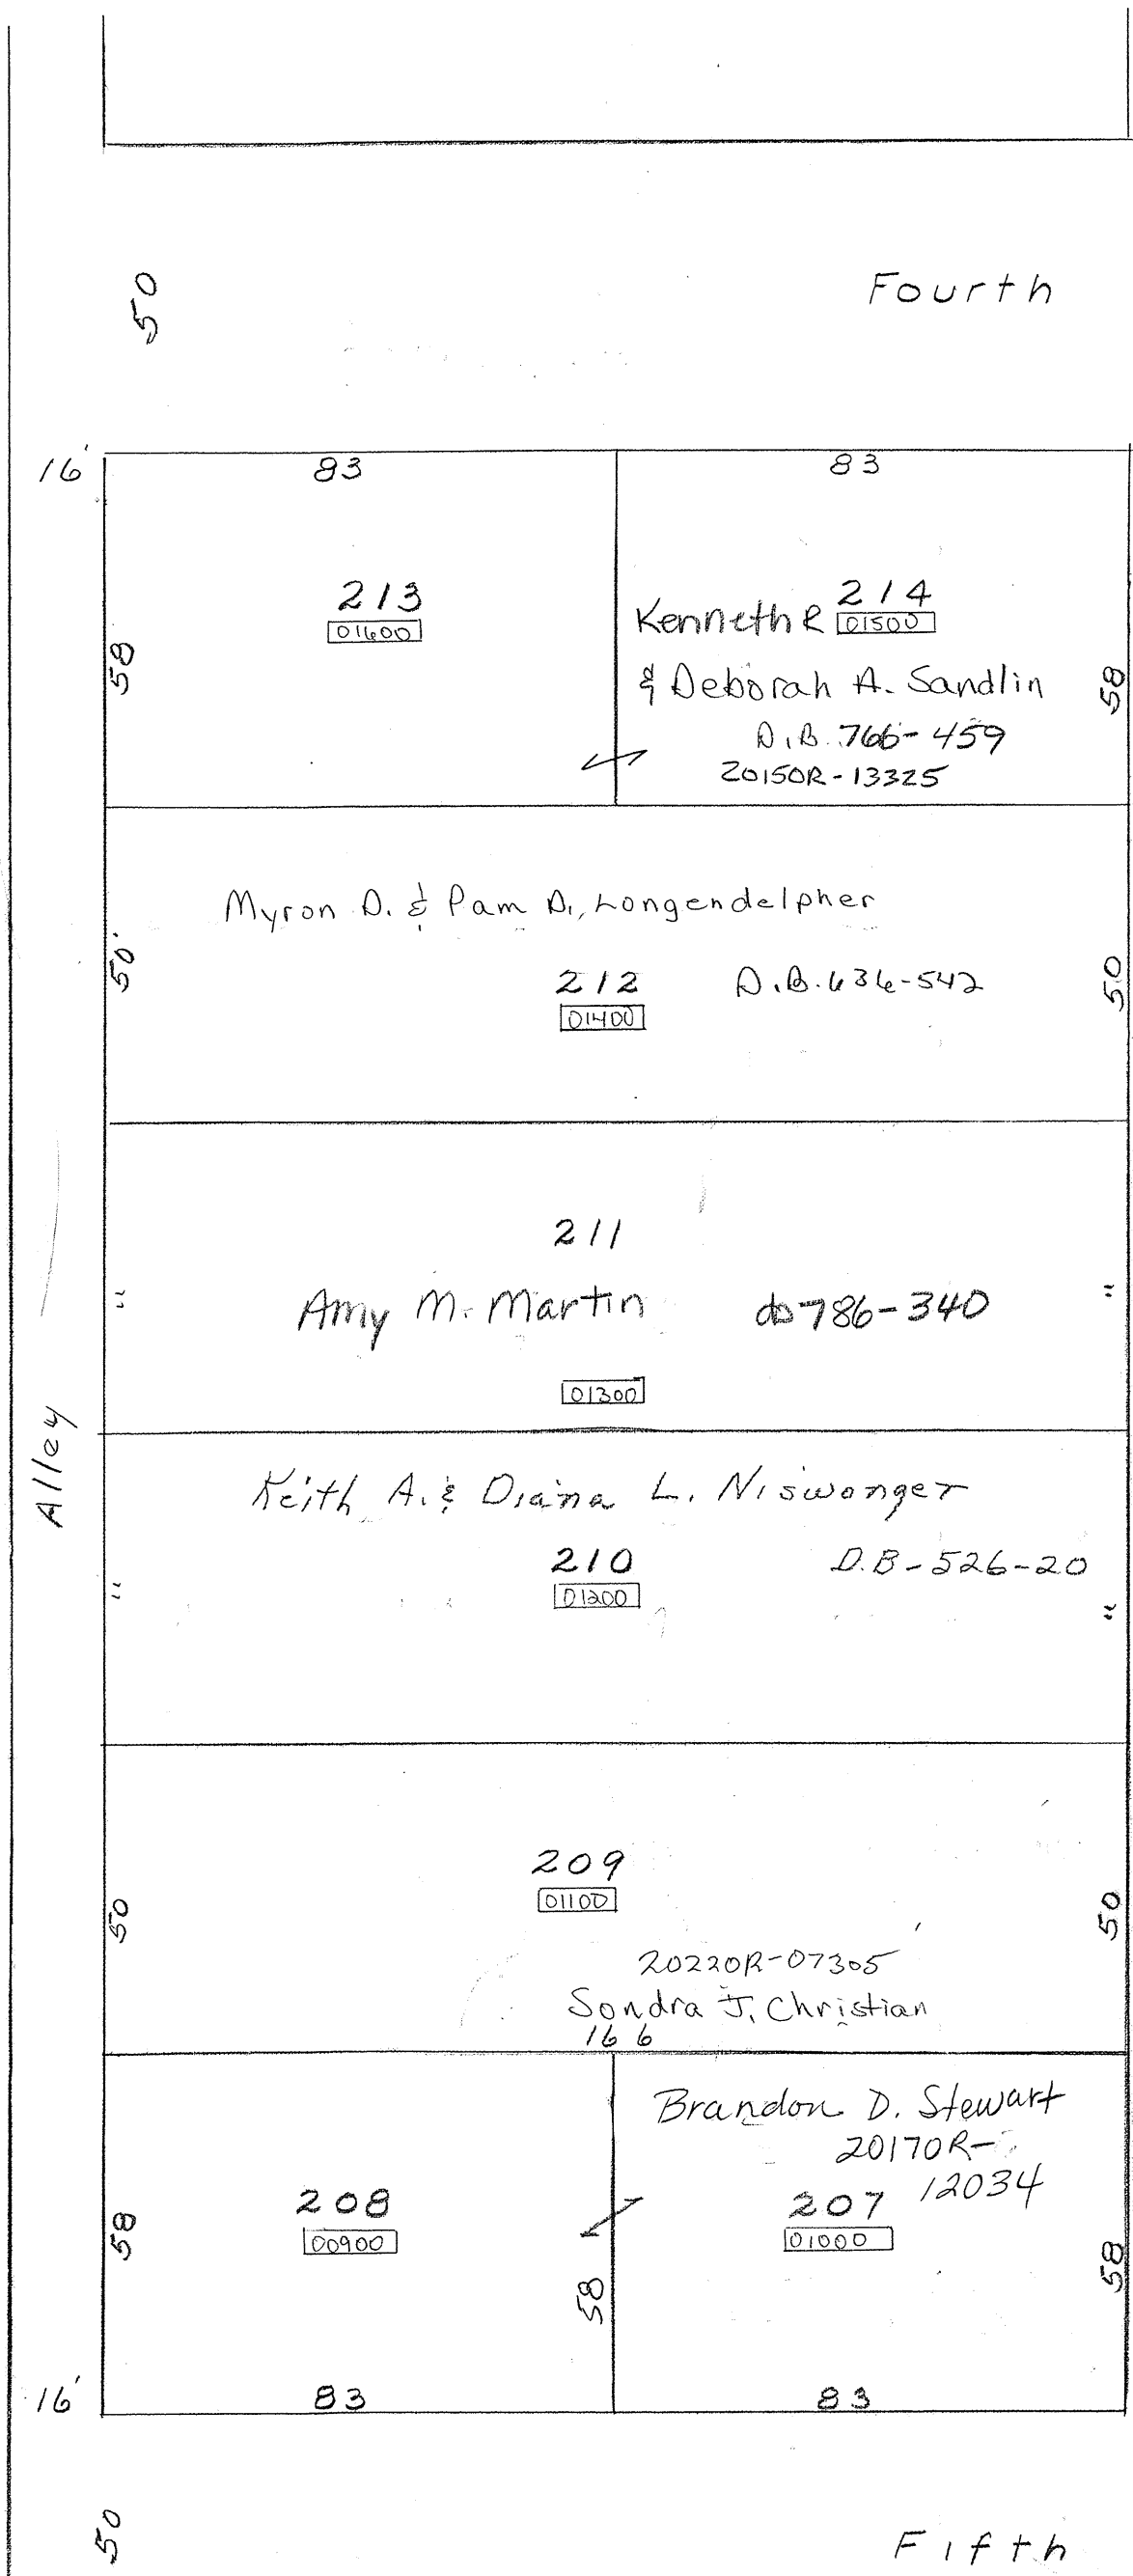 50
Fourth
16'
83
83
213
01600
214
Kenneth R 01500
& Deborah A. Sandlin
58
58
D.B. 766-459
20150R-13325
Myron D. & Pam D. Longendelpher
50'
50
212 D.B. 636-542
01400
211
" Amy M. Martin db 786-340 "
01300
Alley
Keith A. & Diana L. Niswonger
210 D.B-526-20
" 01200 "
209
01100
50
50
20220R-07305
Sondra J. Christian
166
Brandon D. Stewart
20170R-
12034
208
00900
207
01000
58
58
58
16'
83
83
50
Fifth